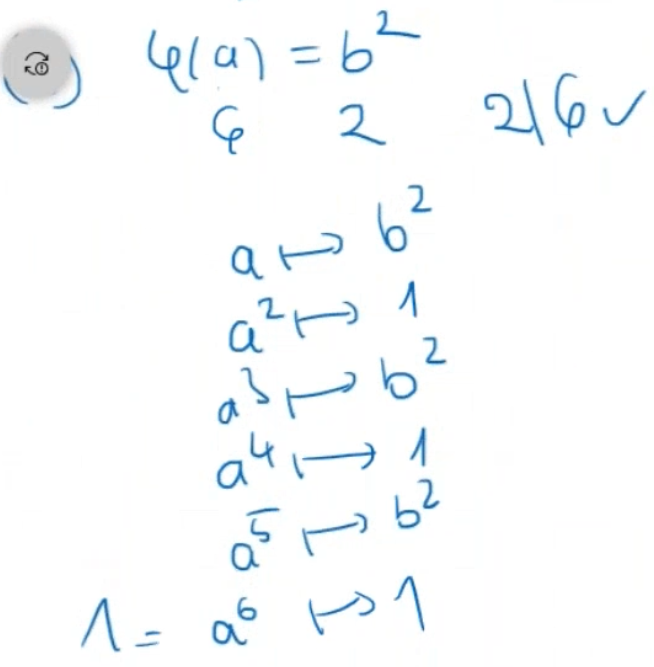 ) φ(a) = b²
6 2 2|6 ✓
a ↦ b²
a² ↦ 1
a³ ↦ b²
a⁴ ↦ 1
a⁵ ↦ b²
1 = a⁶ ↦ 1